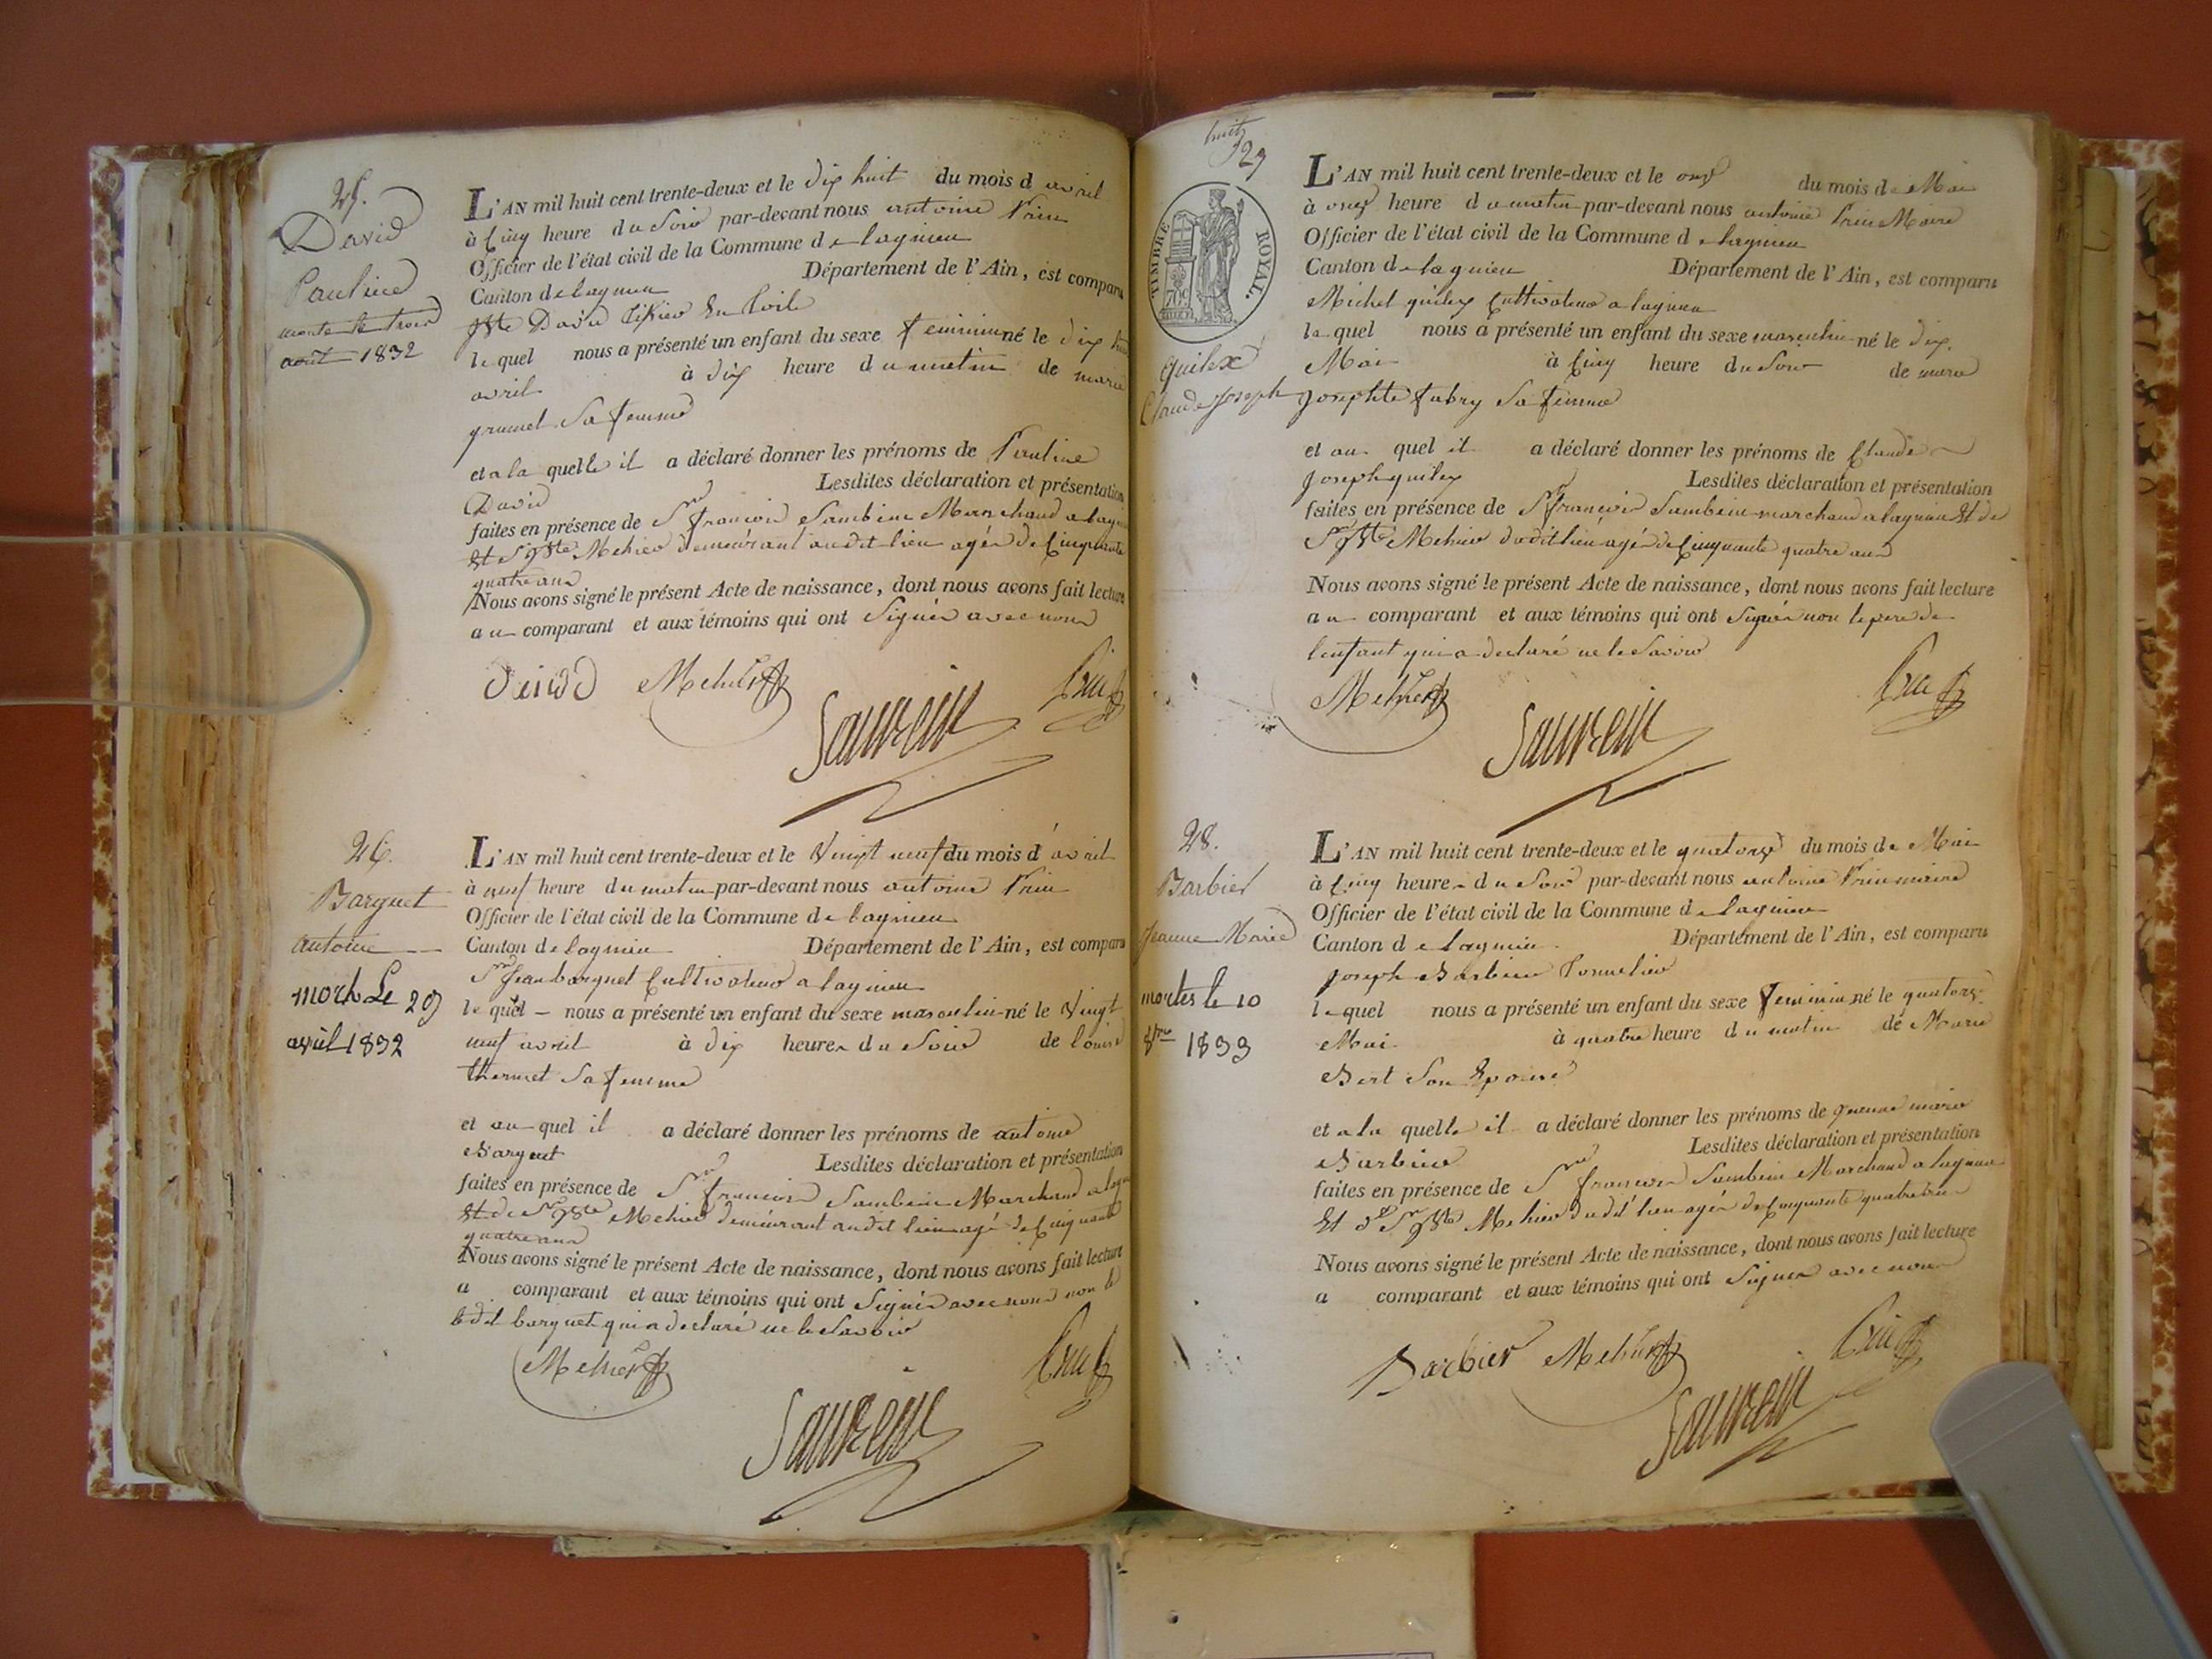 25.
David
Pauline
morte le trois
août 1832
L'AN mil huit cent trente-deux et le dix huit du mois d avril
à cinq heure du soir par-devant nous antoine Prin
Officier de l'état civil de la Commune de lagnieu
Canton de lagnieu Département de l'Ain, est comparu
Jbte David en toile
le quel nous a présenté un enfant du sexe feminin né le dix huit
avril à dix heure du matin de marie
grumet sa femme
et a la quelle il a déclaré donner les prénoms de Pauline
David Lesdites déclaration et présentation
faites en présence de Sr françois Marchand a lagnieu
Et Sr Jbte Mehier demeurant audit lieu agés de Cinquante
quatre ans
Nous avons signé le présent Acte de naissance, dont nous avons fait lecture
au comparant et aux témoins qui ont Signés avec nous
David Mehier Prin
26.
Barquet
antoine
mort Le 29
avril 1832
L'AN mil huit cent trente-deux et le Vingt neuf du mois d'avril
à neuf heure du matin par-devant nous antoine Prin
Officier de l'état civil de la Commune de lagnieu
Canton de lagnieu Département de l'Ain, est comparu
Sr Jean barquet Cultivateur a lagnieu
le quel nous a présenté un enfant du sexe masculin né le Vingt
neuf avril à dix heures du soir de louise
thermet sa femme
et au quel il a déclaré donner les prénoms de antoine
Barquet Lesdites déclaration et présentation
faites en présence de Sr françois Marchand a lagnieu
Et de Sr Jbte Mehier demeurant audit lieu agé de Cinquante
quatre ans
Nous avons signé le présent Acte de naissance, dont nous avons fait lecture
a comparant et aux témoins qui ont Signés avec nous non le
ledit barquet qui a declaré ne le savoir
Mehier Prin
huit
29
TIMBRE ROYAL.
quilex
Claude Joseph
L'AN mil huit cent trente-deux et le onze du mois de Mai
à onze heure du matin par-devant nous antoine Prin Maire
Officier de l'état civil de la Commune de lagnieu
Canton de lagnieu Département de l'Ain, est comparu
Michel quilex Cultivateur a lagnieu
le quel nous a présenté un enfant du sexe masculin né le dix
Mai à Cinq heure du soir de marie
Josephte fabry sa femme
et au quel il a déclaré donner les prénoms de Claude
Joseph quilex Lesdites déclaration et présentation
faites en présence de Sr françois marchand a lagnieu Et de
Sr Jbte Mehier dudit lieu agés de Cinquante quatre ans
Nous avons signé le présent Acte de naissance, dont nous avons fait lecture
au comparant et aux témoins qui ont Signés non le pere de
l'enfant qui a declaré ne le savoir
Mehier Prin
28.
Barbier
Jeanne Marie
mortes le 10
8bre 1833
L'AN mil huit cent trente-deux et le quatorze du mois de Mai
à Cinq heures du soir par-devant nous antoine Prin maire
Officier de l'état civil de la Commune de lagnieu
Canton de lagnieu Département de l'Ain, est comparu
joseph Barbier Tonnelier
le quel nous a présenté un enfant du sexe feminin né le quatorze
Mai à quatre heure du matin de Marie
Bert son Epouse
et a la quelle il a déclaré donner les prénoms de jeanne marie
Barbier Lesdites déclaration et présentation
faites en présence de Sr françois Marchand a lagnieu
Et d Sr Jbte Mehier dudit lieu agés de Cinquante quatre ans
Nous avons signé le présent Acte de naissance, dont nous avons fait lecture
a comparant et aux témoins qui ont Signés avec nous
Barbier Mehier Prin